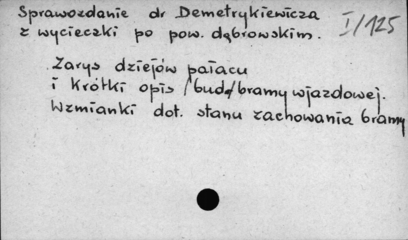 Sprawozdanie dr Demetrykiewicza I/125
z wycieczki po pow. dąbrowskim.
Zarys dziejów pałacu
i krótki opis /bud/ bramy wjazdowej.
Wzmianki dot. stanu zachowania bramy